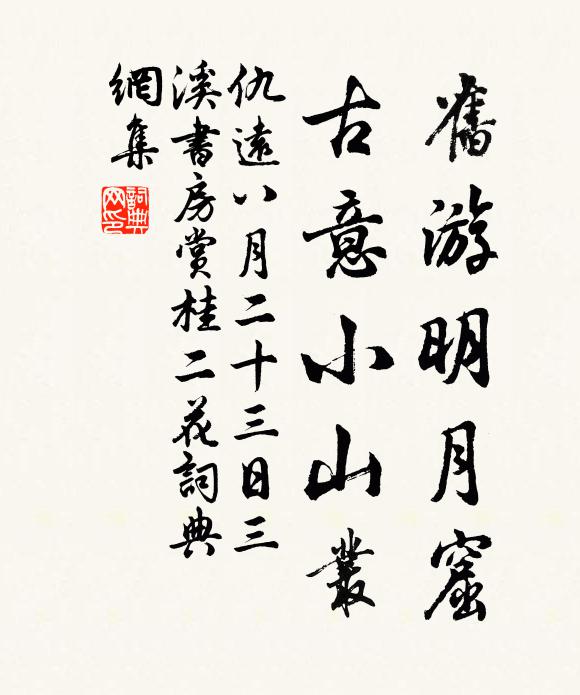 舊游明月窟
古意小山叢
仇遠八月二十三日三
溪書房賞桂二花詞典
網集
詞典网印